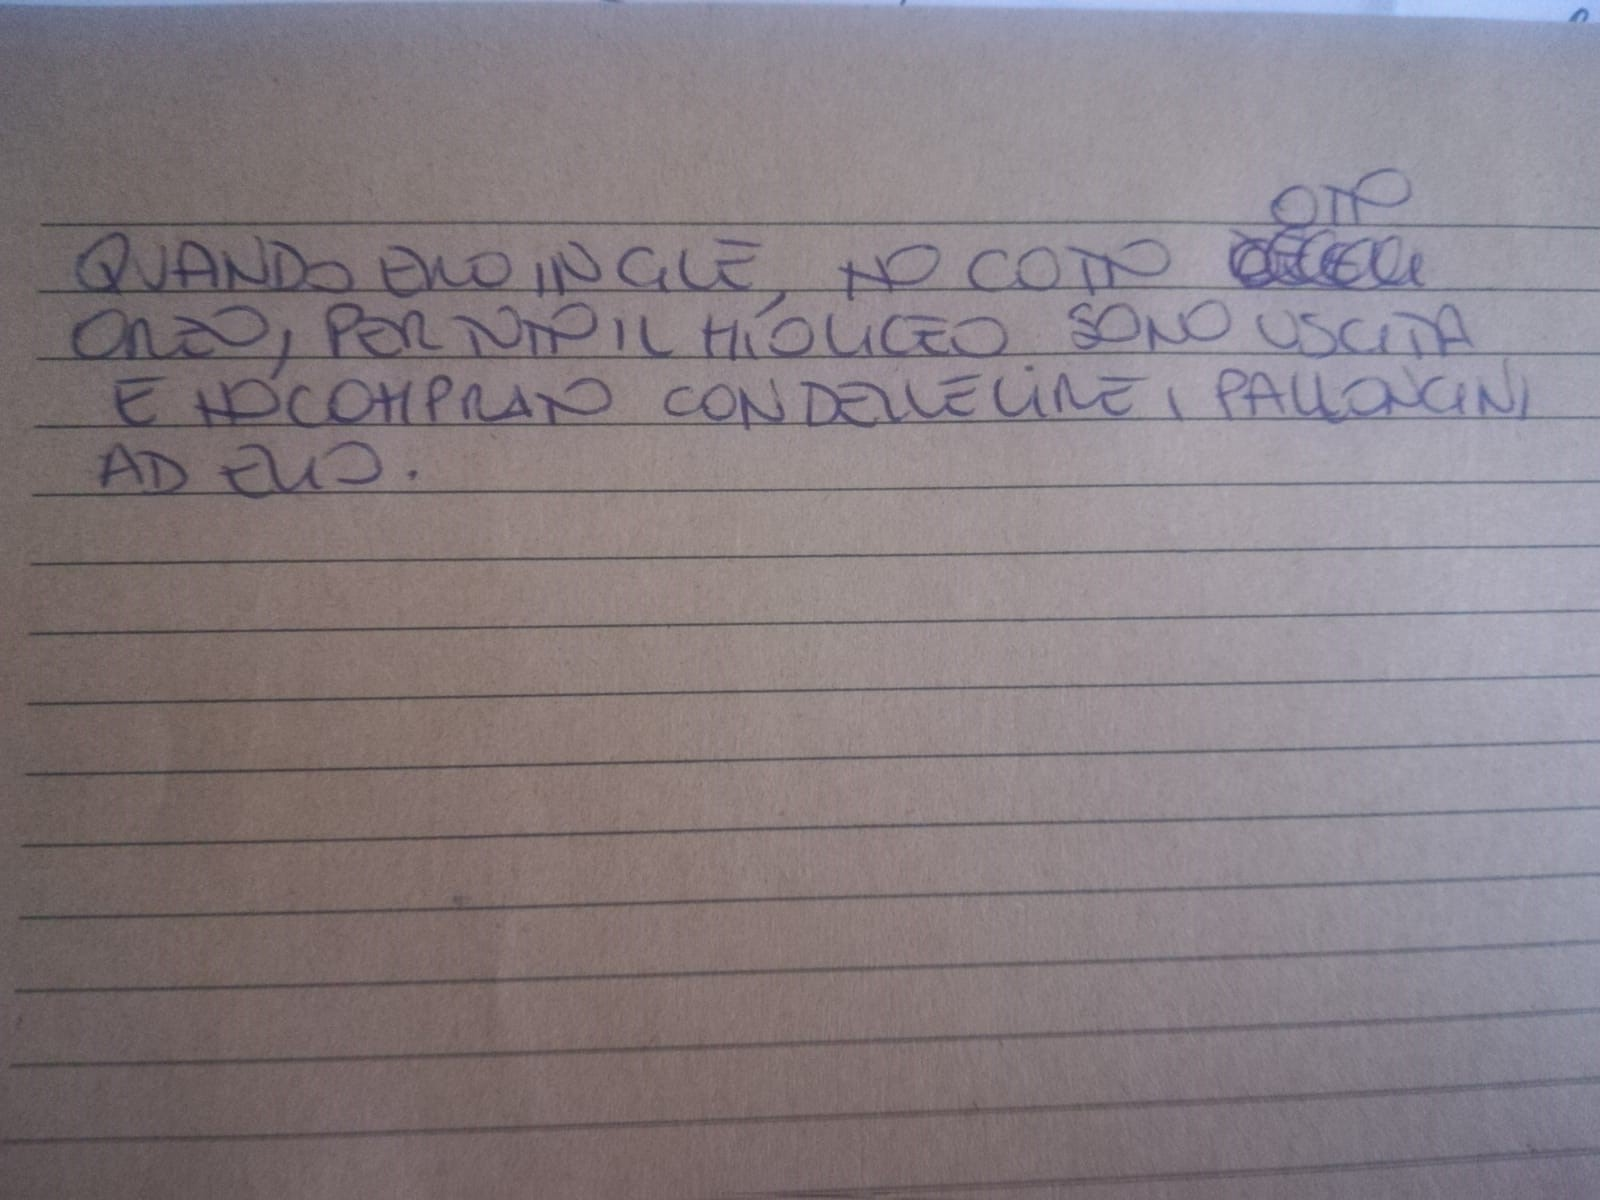 OTTO
QUANDO ERO IN GLE, HO COTTO
ORZO, PER TUTTO IL MIO LICEO SONO USCITA
E HO COMPRATO CON DELLE LIRE I PALLONCINI
AD ELIO.